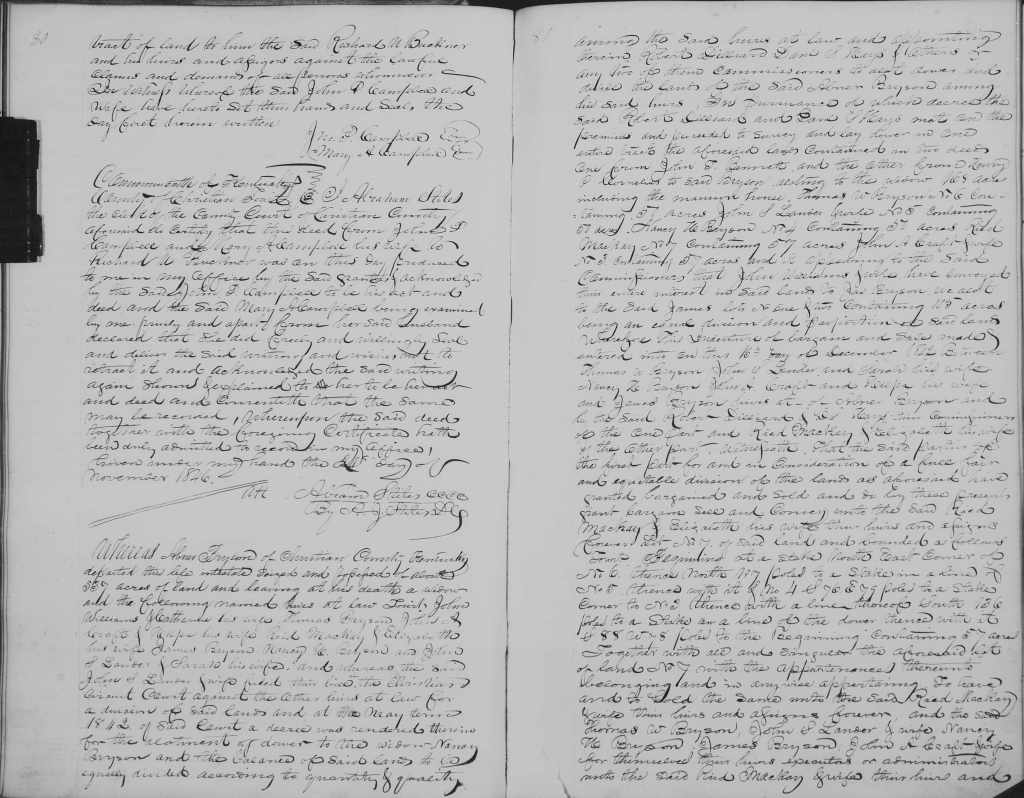 80
tract of land to him the said Richard M Buckner
and his heirs and assigns against the lawful
claims and demands of all persons whomsoever
In witness whereof the said John P Campbell and
wife have hereto set their hands and seals the
day first herein written
Jno. P. Campbell
Mary A Campbell
Commonwealth of Kentucky
County of Christian I Abraham Stites
the clerk of the County Court of Christian County
aforesaid do certify that this deed from John P
Campbell and Mary A Campbell his wife to
Richard was on this day produced
to me in my office by the said grantor & acknowledged
by the said John P. Campbell to be his act and
deed and the said Mary A Campbell being examined
by me privily and apart from her said husband
declared that she did freely and willingly seal
and deliver the said writing and wishes not to
retract it and acknowledged the said writing
again shown & explained to her to be her act
and deed and consenteth that the same
may be recorded, whereupon the said deed
together with the foregoing Certificate hath
been duly admitted to record in my office,
Given under my hand the day of
November 1846.
Att Abram Stites
By A. J. Stites
Whereas Abner Bryson of Christian County, Kentucky
departed this life intestate seized and possessed of about
acres of land and leaving at his death a widow
and the following named heirs at law Towit, John
Williams & Catherine his wife Thomas Bryson John A
Craft & his wife Reed Mackay & Elizabeth
his wife James Bryson Nancy H. Bryson and John
S Lander & Sarah his wife, and whereas the said
John S Lander & wife filed their bill in the Christian
Circuit Court against the other heirs at law for
a division of said lands and at the May term
1842 of said Court a decree was rendered therein
for the alotment of dower to the widow Nancy
Bryson and the balance of said lands to be
equally divided according to quantity & quality
81
among the said heirs at law and appointing
therein Robert Dillard Dan S Hays & others or
any two of them Commissioners to alot dower and
devide the lands of the said Abner Bryson among
his said heirs, In pursuance of which decree the
said Robert Dillard and Dan S Hays met on the
premises and proceded to survey and lay down in one
entire tract the aforesaid land contained in two deeds
one from John F. Bennett and the other from Henry
to said Bryson, alotting to the widow 168 acres
including the mansion house, Thomas W Bryson No 6 Con-
taining 57 acres John S Lander & wife No 5 Containing
57 acres, Nancy H. Bryson No 4 Containing 57 acres Reed
Mackay No 7 Containing 57 acres John A Craft & wife
No 3 Containing 57 acres and it appearing to the said
Commissioners that John Williams & wife have conveyed
their entire interest in said lands to Jas Bryson we alot
to the said James lots No one & two Containing 115 acres
being an equal division and partition of said lands
Wherefore this Indenture of bargain and sale made &
entered into on this 16th day of December 1842 Between
Thomas W Bryson John S Lander and Sarah his wife
Nancy H Bryson John A Craft and his wife
and James Bryson heirs at law of Abner Bryson and
to the said Robert Dillard & D S Hays their Commissioners
of the one part and Reed Mackay & Elizabeth his wife
of the other part. Witnesseth That the said parties of
the first part for and in Consideration of a full fair
and equitable division of the lands as aforesaid have
granted bargained and sold and do by these presents
grant bargain sell and Convey unto the said Reed
Mackay & Elizabeth his wife their heirs and assigns
forever Lot No 7. of said land and bounded as follows
Towit Beginning at a stake North East Corner of
No 6. thence North poles to a Stake in a line of
No 5 thence with it & No 4 S 76 E 79 poles to a stake
corner to No 3 thence with a line thereof South 136
poles to a Stake in a line of the dower thence with it
S 88 W 78 poles to the Beginning Containing 57 acres
Together with all and singular the aforesaid lot
of land No 7 with the appurtenances thereunto
belonging and in any wise appertaining To have
and to hold the same unto the said Reed Mackay
& wife their heirs and assigns forever, and the said
Thomas W Bryson, John S Lander & wife Nancy
H Bryson, James Bryson John A Craft & wife
for themselves their heirs executors or administrators
unto the said Reed Mackay & wife their heirs and